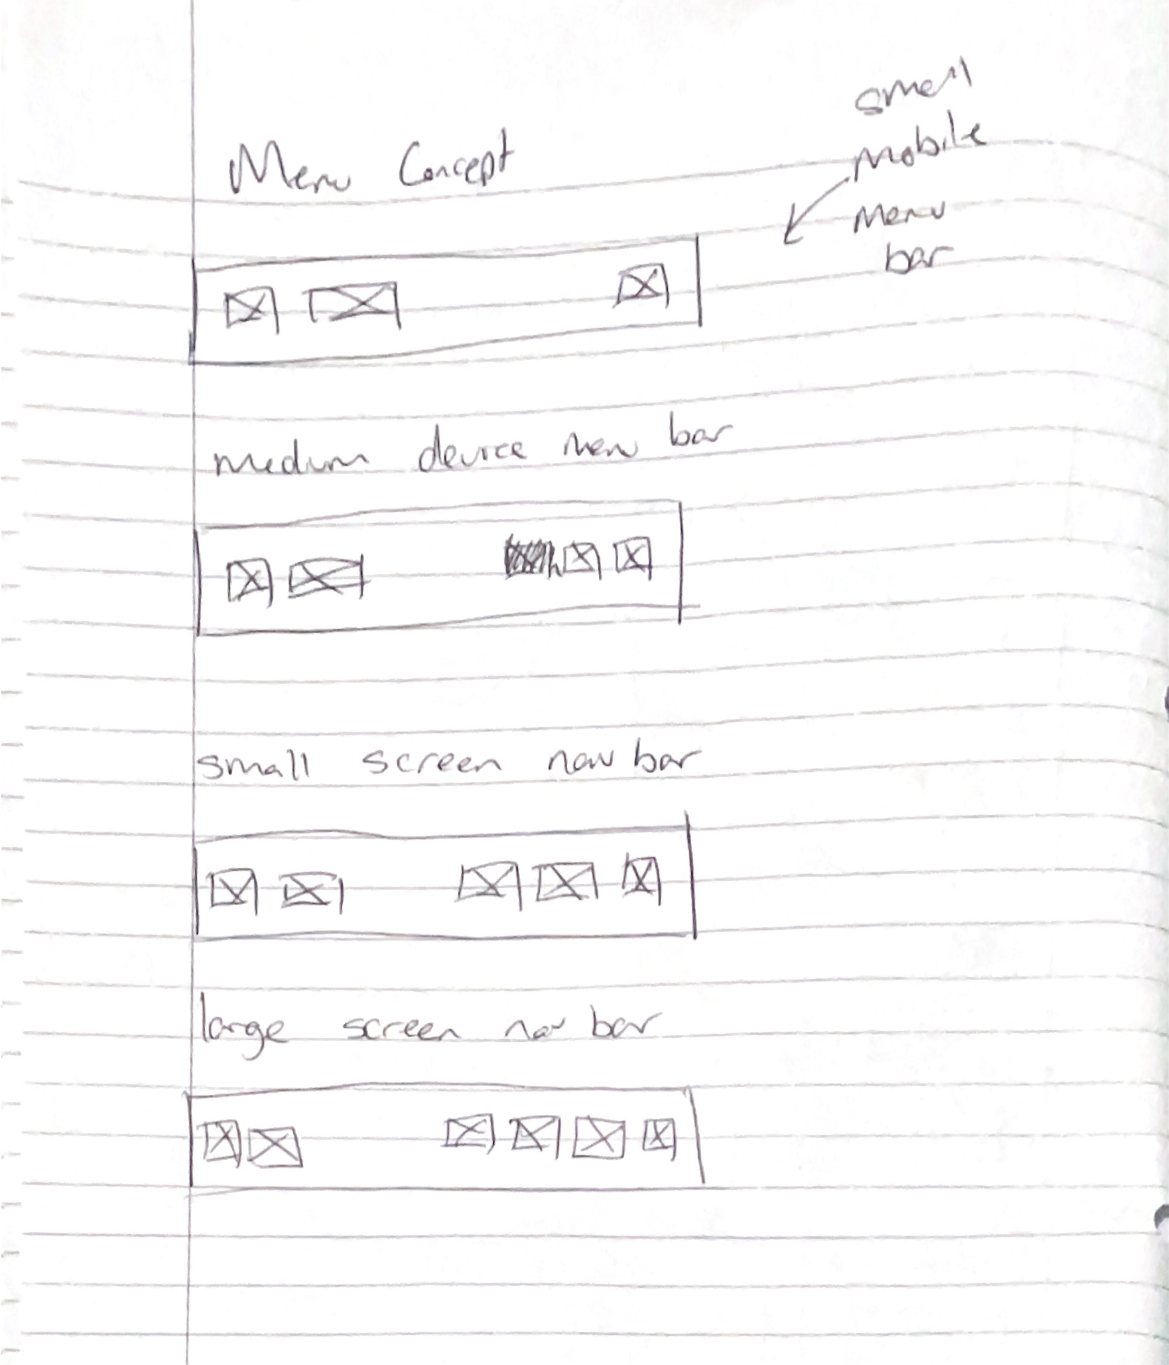 Menu Concept
small
mobile
menu
bar
medium device menu bar
small screen nav bar
large screen nav bar